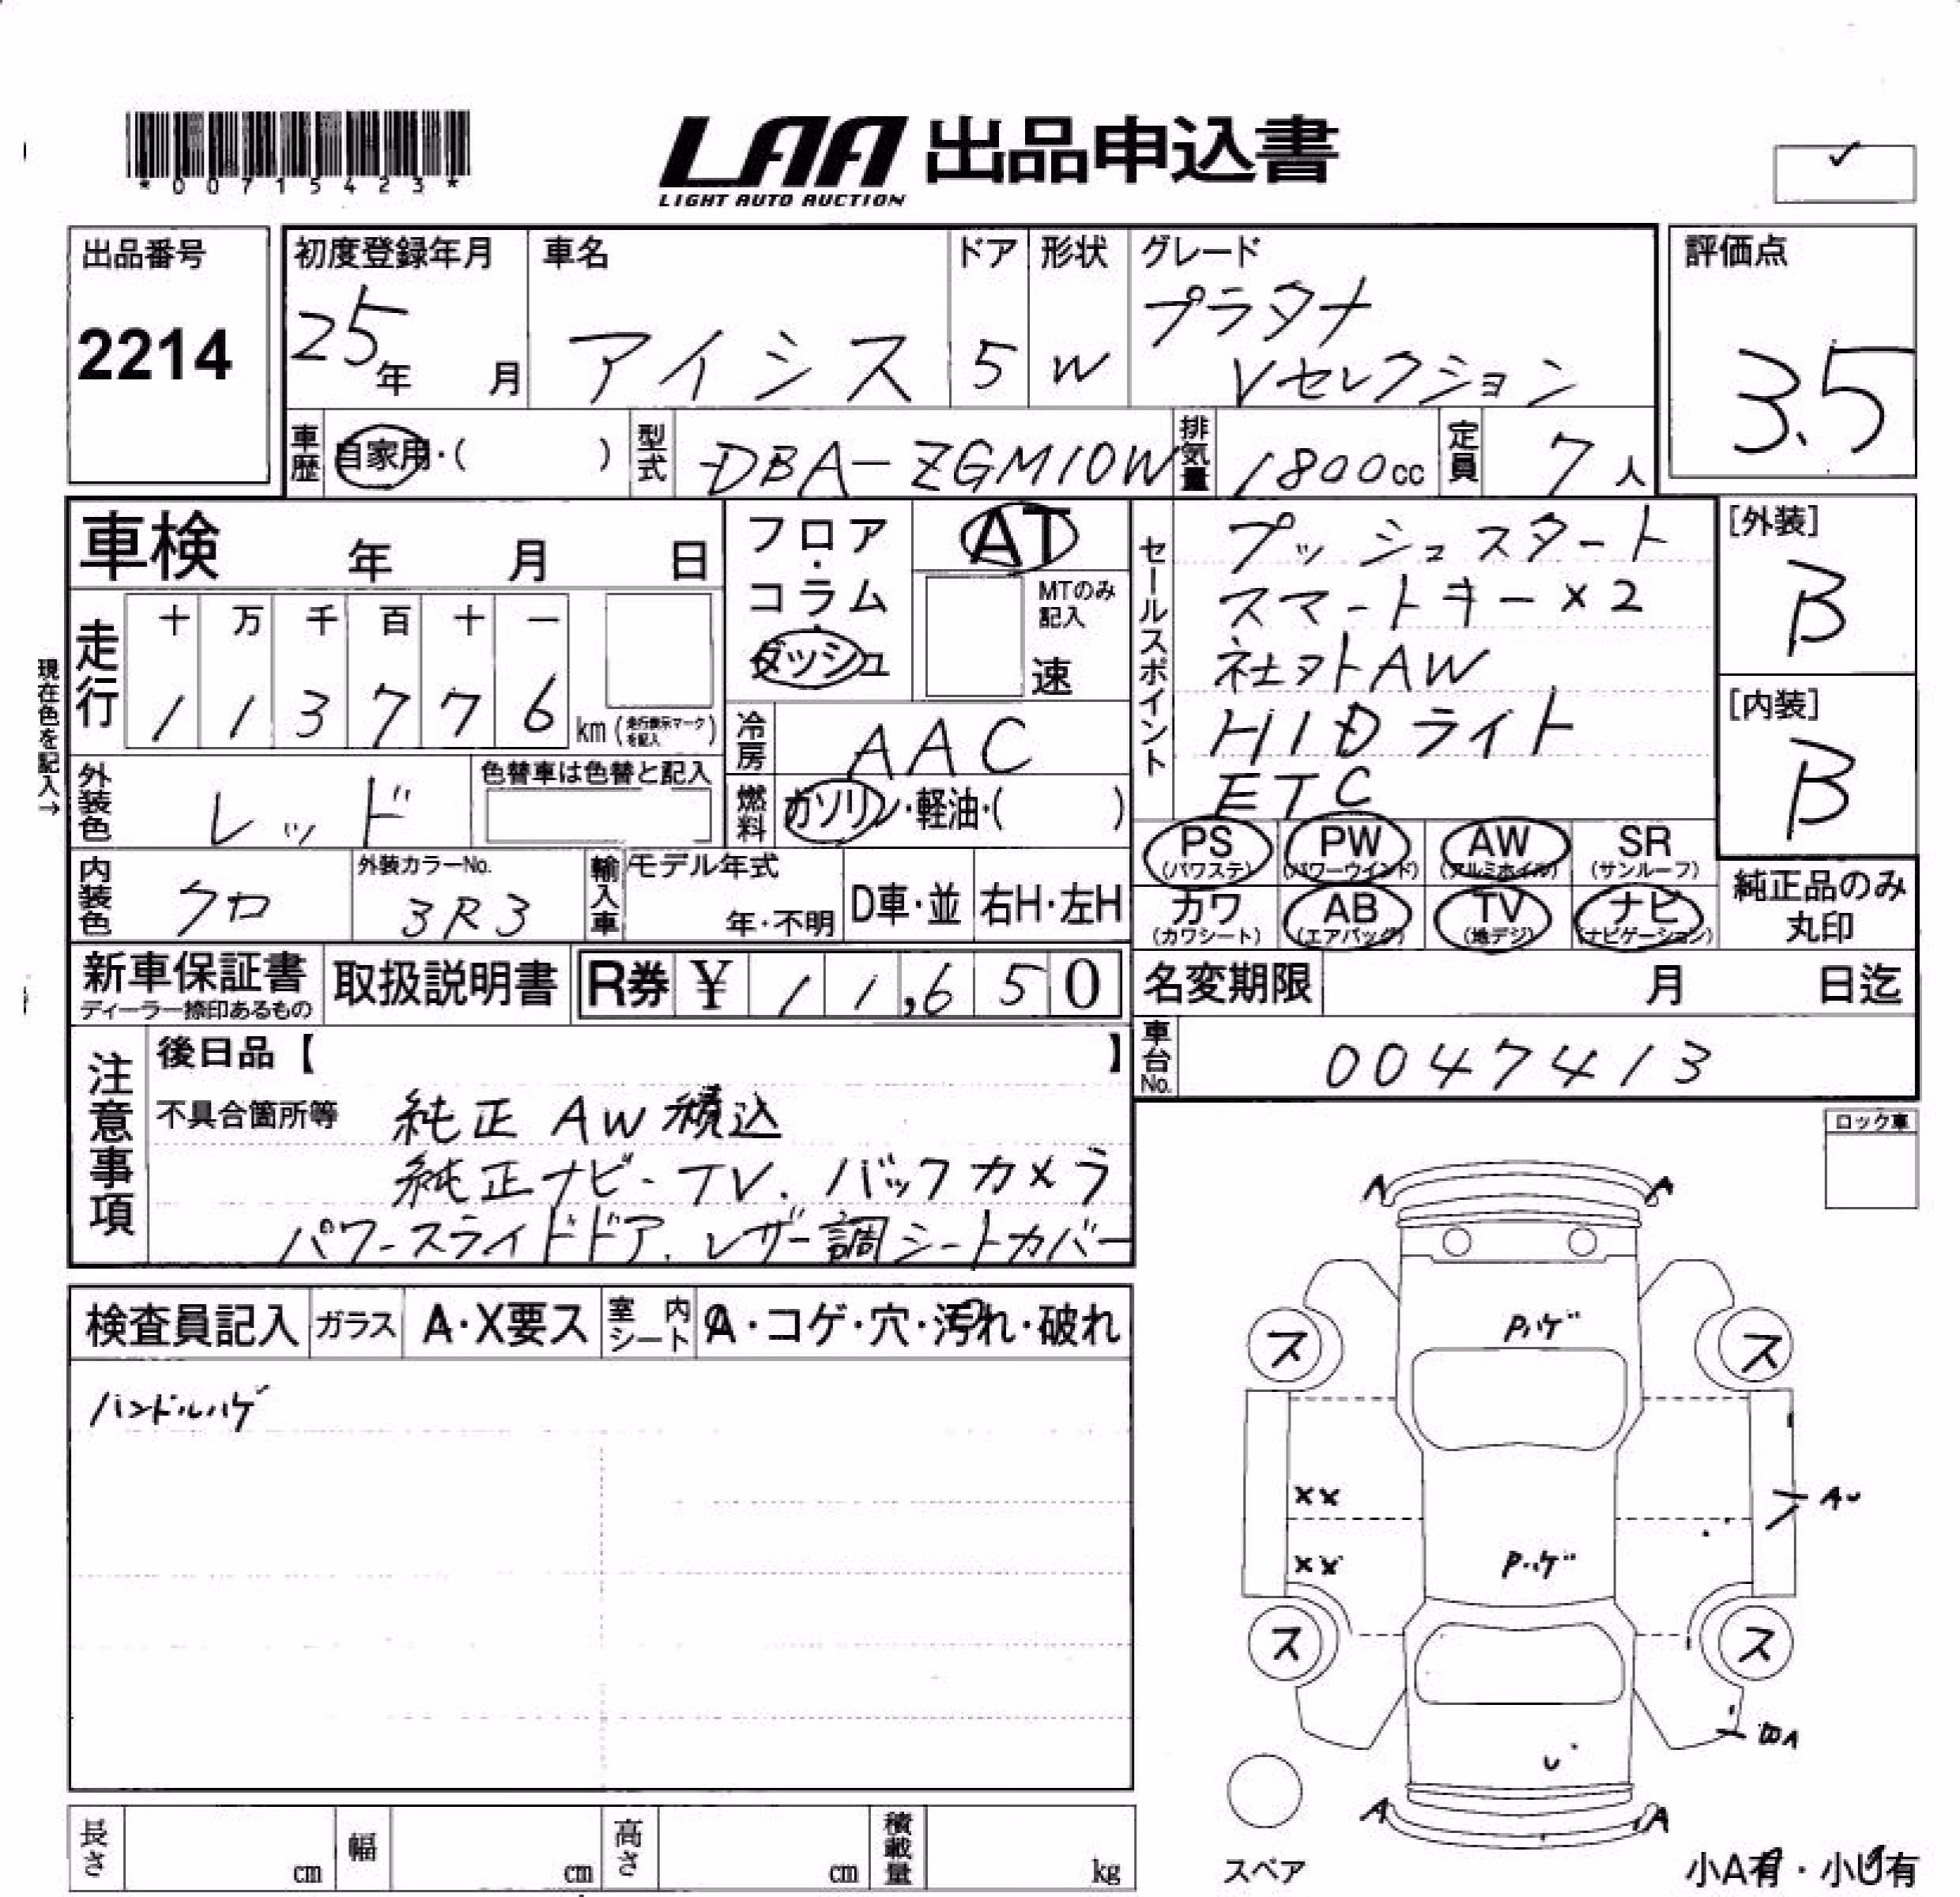 *00715423*
LAA 出品申込書
LIGHT AUTO AUCTION
✓
出品番号
2214
初度登録年月
25年 月
車名
アイシス
ドア
5
形状
W
グレード
プラタナ
Vセレクション
評価点
3.5
車歴 自家用・( )
型式 DBA-ZGM10W
排気量 1800cc
定員 7人
車検 年 月 日
走行
十 万 千 百 十 一
1 1 3 7 7 6 km (走行表示マークを記入)
現在色を記入→
外装色 レッド
色替車は色替と記入
内装色 クロ
外装カラーNo.
3R3
輸入車
モデル年式
年・不明
D車・並
右H・左H
フロア・コラム・ダッシュ
AT
MTのみ記入
速
冷房 AAC
燃料 ガソリン・軽油・( )
セールスポイント
プッシュスタート
スマートキー×2
社外AW
HIDライト
ETC
[外装]
B
[内装]
B
PS (パワステ)
PW (パワーウインド)
AW (アルミホイル)
SR (サンルーフ)
カワ (カワシート)
AB (エアバック)
TV (地デジ)
ナビ (ナビゲーション)
純正品のみ
丸印
新車保証書
ディーラー捺印あるもの
取扱説明書
R券 ¥ 11,650
名変期限 月 日迄
車台No. 0047413
注意事項
後日品【 】
不具合箇所等 純正 AW 積込
純正ナビ・TV. バックカメラ
パワースライドドア. レザー調シートカバー
ロック車
検査員記入
ガラス A・X要ス
室内シート A・コゲ・穴・汚れ・破れ
ハンドルハゲ
A A
Pハゲ
ス ス
XX
AU
XX
Pハゲ
ス ス
BA
U
A A
スペア
小A有・小U有
長さ cm
幅 cm
高さ cm
積載量 kg